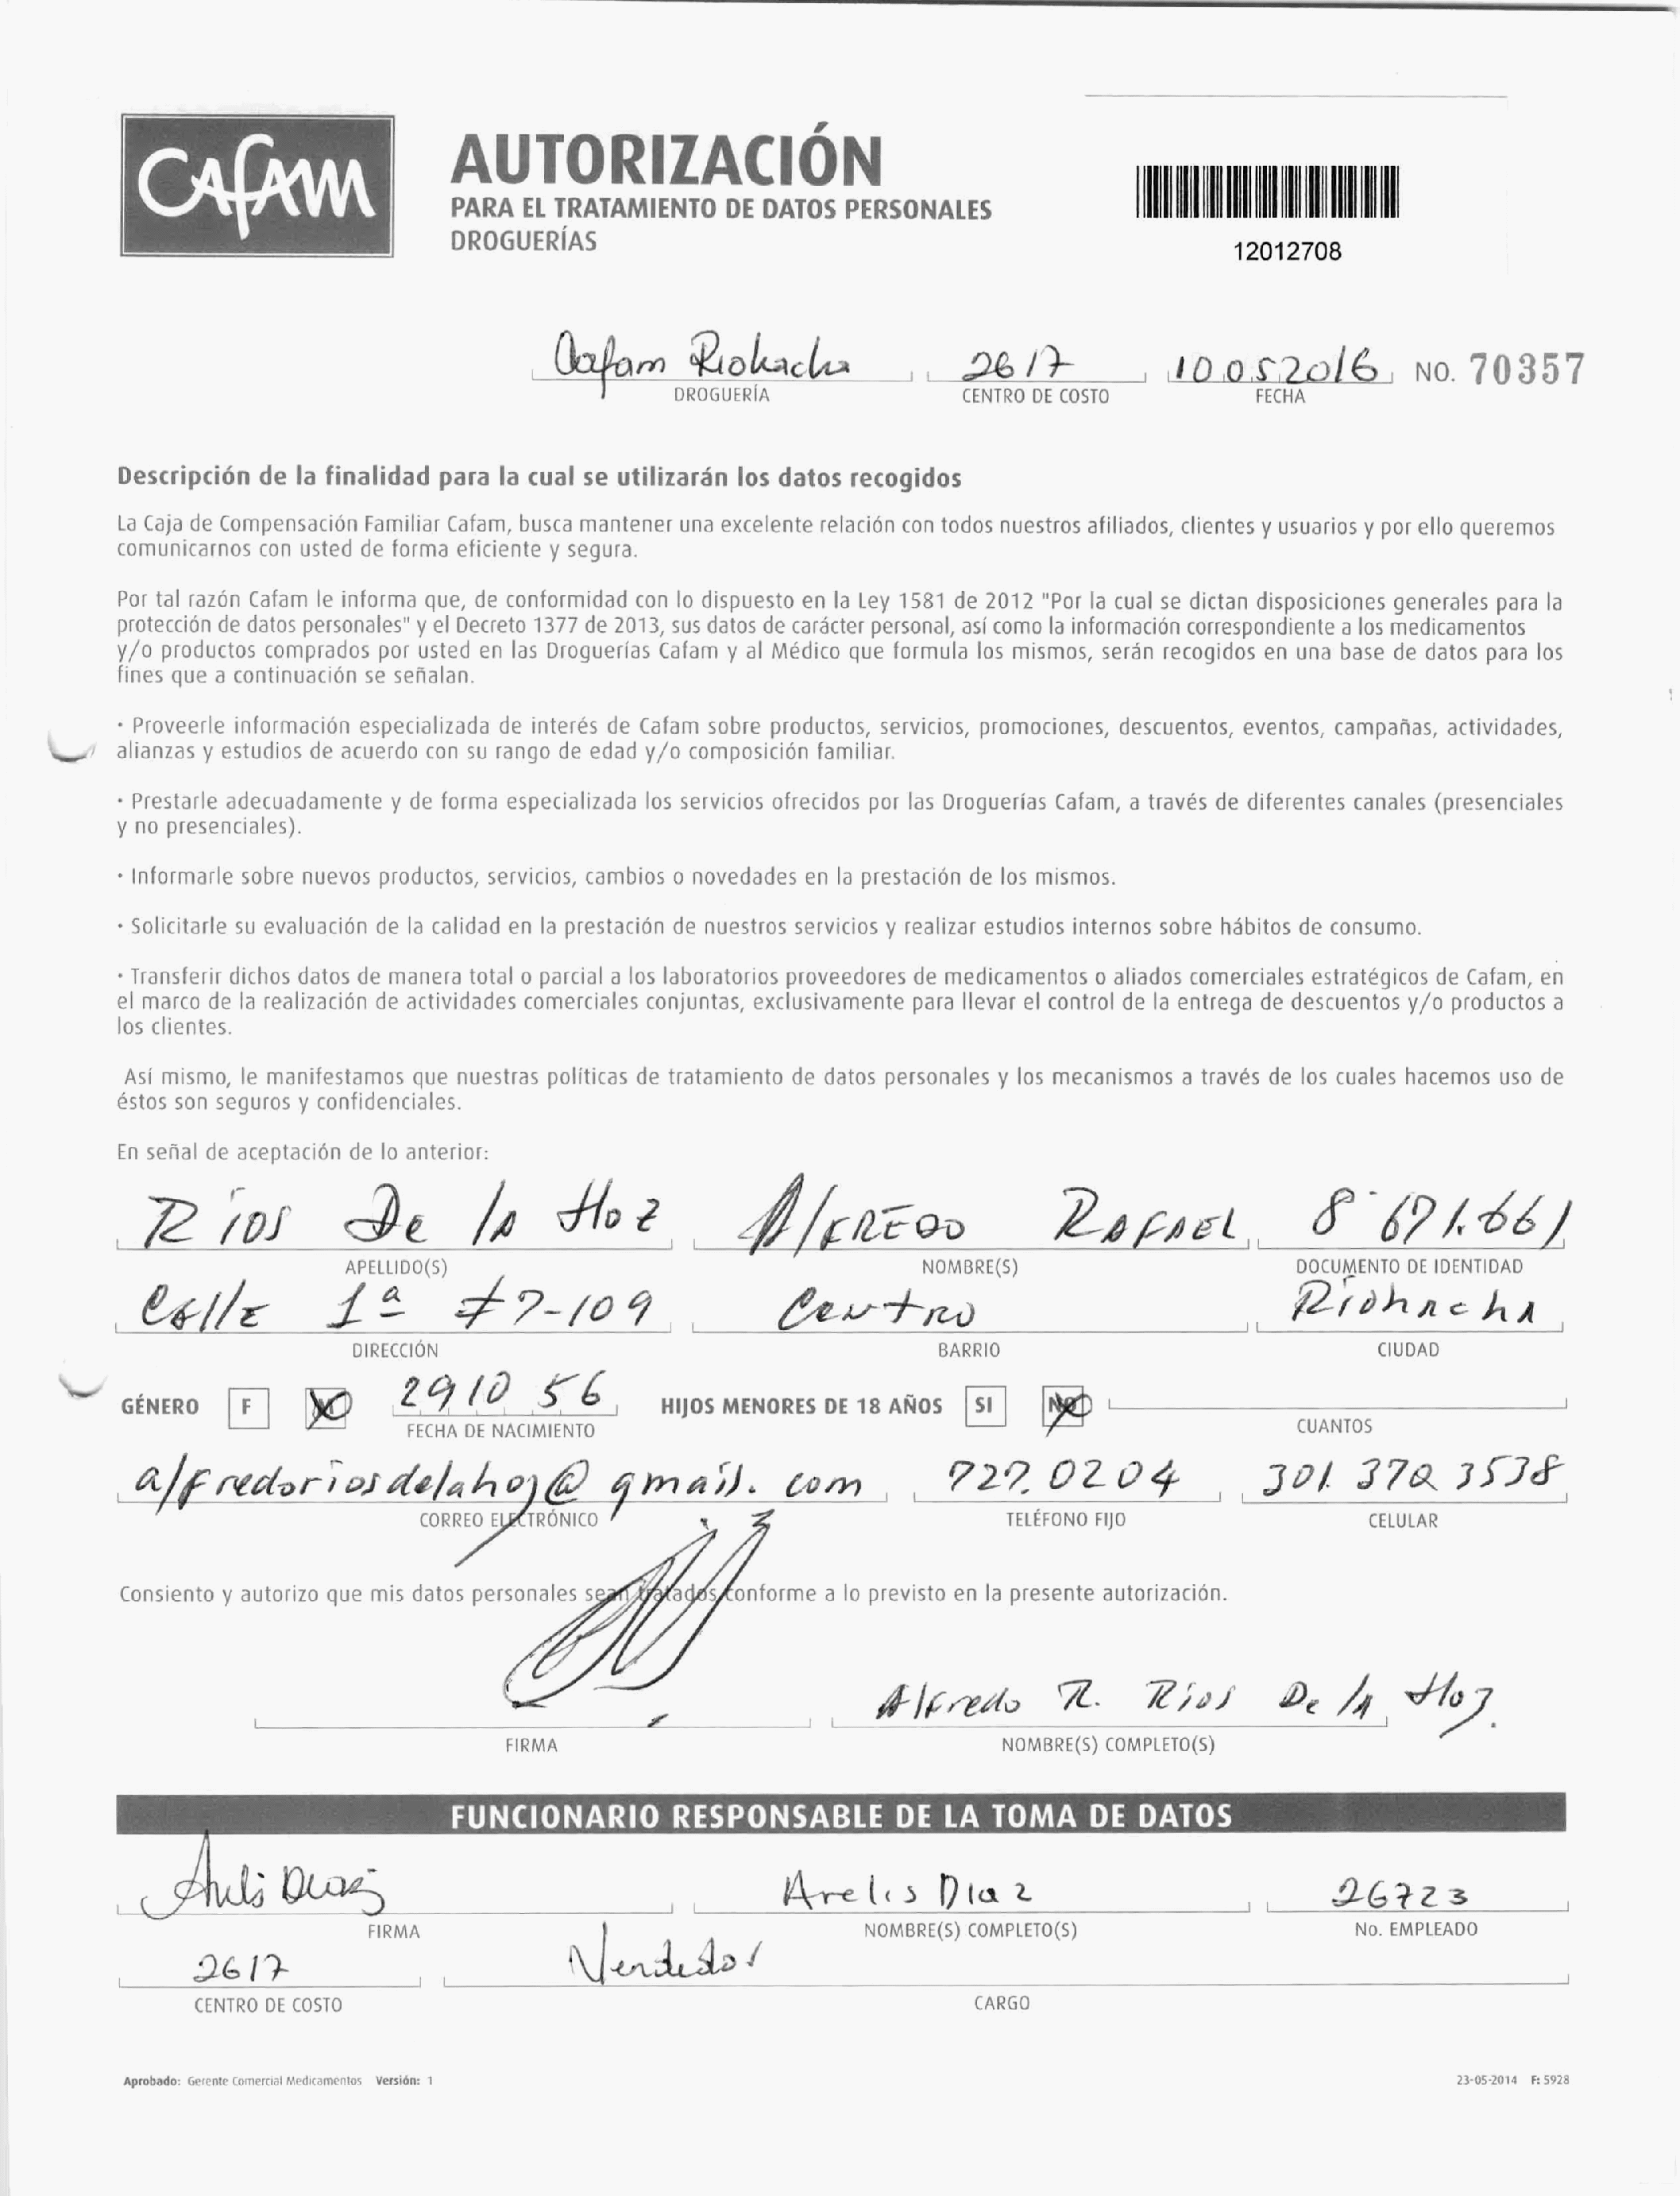 CAFAM
AUTORIZACIÓN
PARA EL TRATAMIENTO DE DATOS PERSONALES
DROGUERÍAS
12012708
Cafam Riohacha 2617 10 05 2016 NO. 70357
DROGUERÍA CENTRO DE COSTO FECHA
Descripción de la finalidad para la cual se utilizarán los datos recogidos
La Caja de Compensación Familiar Cafam, busca mantener una excelente relación con todos nuestros afiliados, clientes y usuarios y por ello queremos
comunicarnos con usted de forma eficiente y segura.
Por tal razón Cafam le informa que, de conformidad con lo dispuesto en la Ley 1581 de 2012 "Por la cual se dictan disposiciones generales para la
protección de datos personales" y el Decreto 1377 de 2013, sus datos de carácter personal, así como la información correspondiente a los medicamentos
y/o productos comprados por usted en las Droguerías Cafam y al Médico que formula los mismos, serán recogidos en una base de datos para los
fines que a continuación se señalan.
· Proveerle información especializada de interés de Cafam sobre productos, servicios, promociones, descuentos, eventos, campañas, actividades,
alianzas y estudios de acuerdo con su rango de edad y/o composición familiar.
· Prestarle adecuadamente y de forma especializada los servicios ofrecidos por las Droguerías Cafam, a través de diferentes canales (presenciales
y no presenciales).
· Informarle sobre nuevos productos, servicios, cambios o novedades en la prestación de los mismos.
· Solicitarle su evaluación de la calidad en la prestación de nuestros servicios y realizar estudios internos sobre hábitos de consumo.
· Transferir dichos datos de manera total o parcial a los laboratorios proveedores de medicamentos o aliados comerciales estratégicos de Cafam, en
el marco de la realización de actividades comerciales conjuntas, exclusivamente para llevar el control de la entrega de descuentos y/o productos a
los clientes.
Así mismo, le manifestamos que nuestras políticas de tratamiento de datos personales y los mecanismos a través de los cuales hacemos uso de
éstos son seguros y confidenciales.
En señal de aceptación de lo anterior:
Ríos De la Hoz Alfredo Rafael 8'671.661
APELLIDO(S) NOMBRE(S) DOCUMENTO DE IDENTIDAD
Calle 1ª #7-109 Centro Riohacha
DIRECCIÓN BARRIO CIUDAD
GÉNERO F M 29 10 56 HIJOS MENORES DE 18 AÑOS SI NO
FECHA DE NACIMIENTO CUANTOS
alfredoriosdelahoz@gmail.com 727.0204 301.372 3538
CORREO ELECTRÓNICO TELÉFONO FIJO CELULAR
Consiento y autorizo que mis datos personales sean tratados conforme a lo previsto en la presente autorización.
Alfredo R. Ríos De la Hoz.
FIRMA NOMBRE(S) COMPLETO(S)
FUNCIONARIO RESPONSABLE DE LA TOMA DE DATOS
Arelis Diaz Arelis Diaz 26723
FIRMA NOMBRE(S) COMPLETO(S) No. EMPLEADO
2617 Vendedor
CENTRO DE COSTO CARGO
Aprobado: Gerente Comercial Medicamentos Versión: 1 23-05-2014 F: 5928